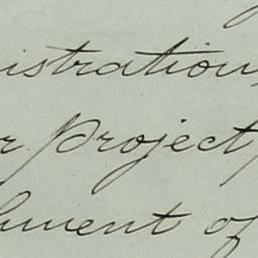 istration,
r project,
hment of